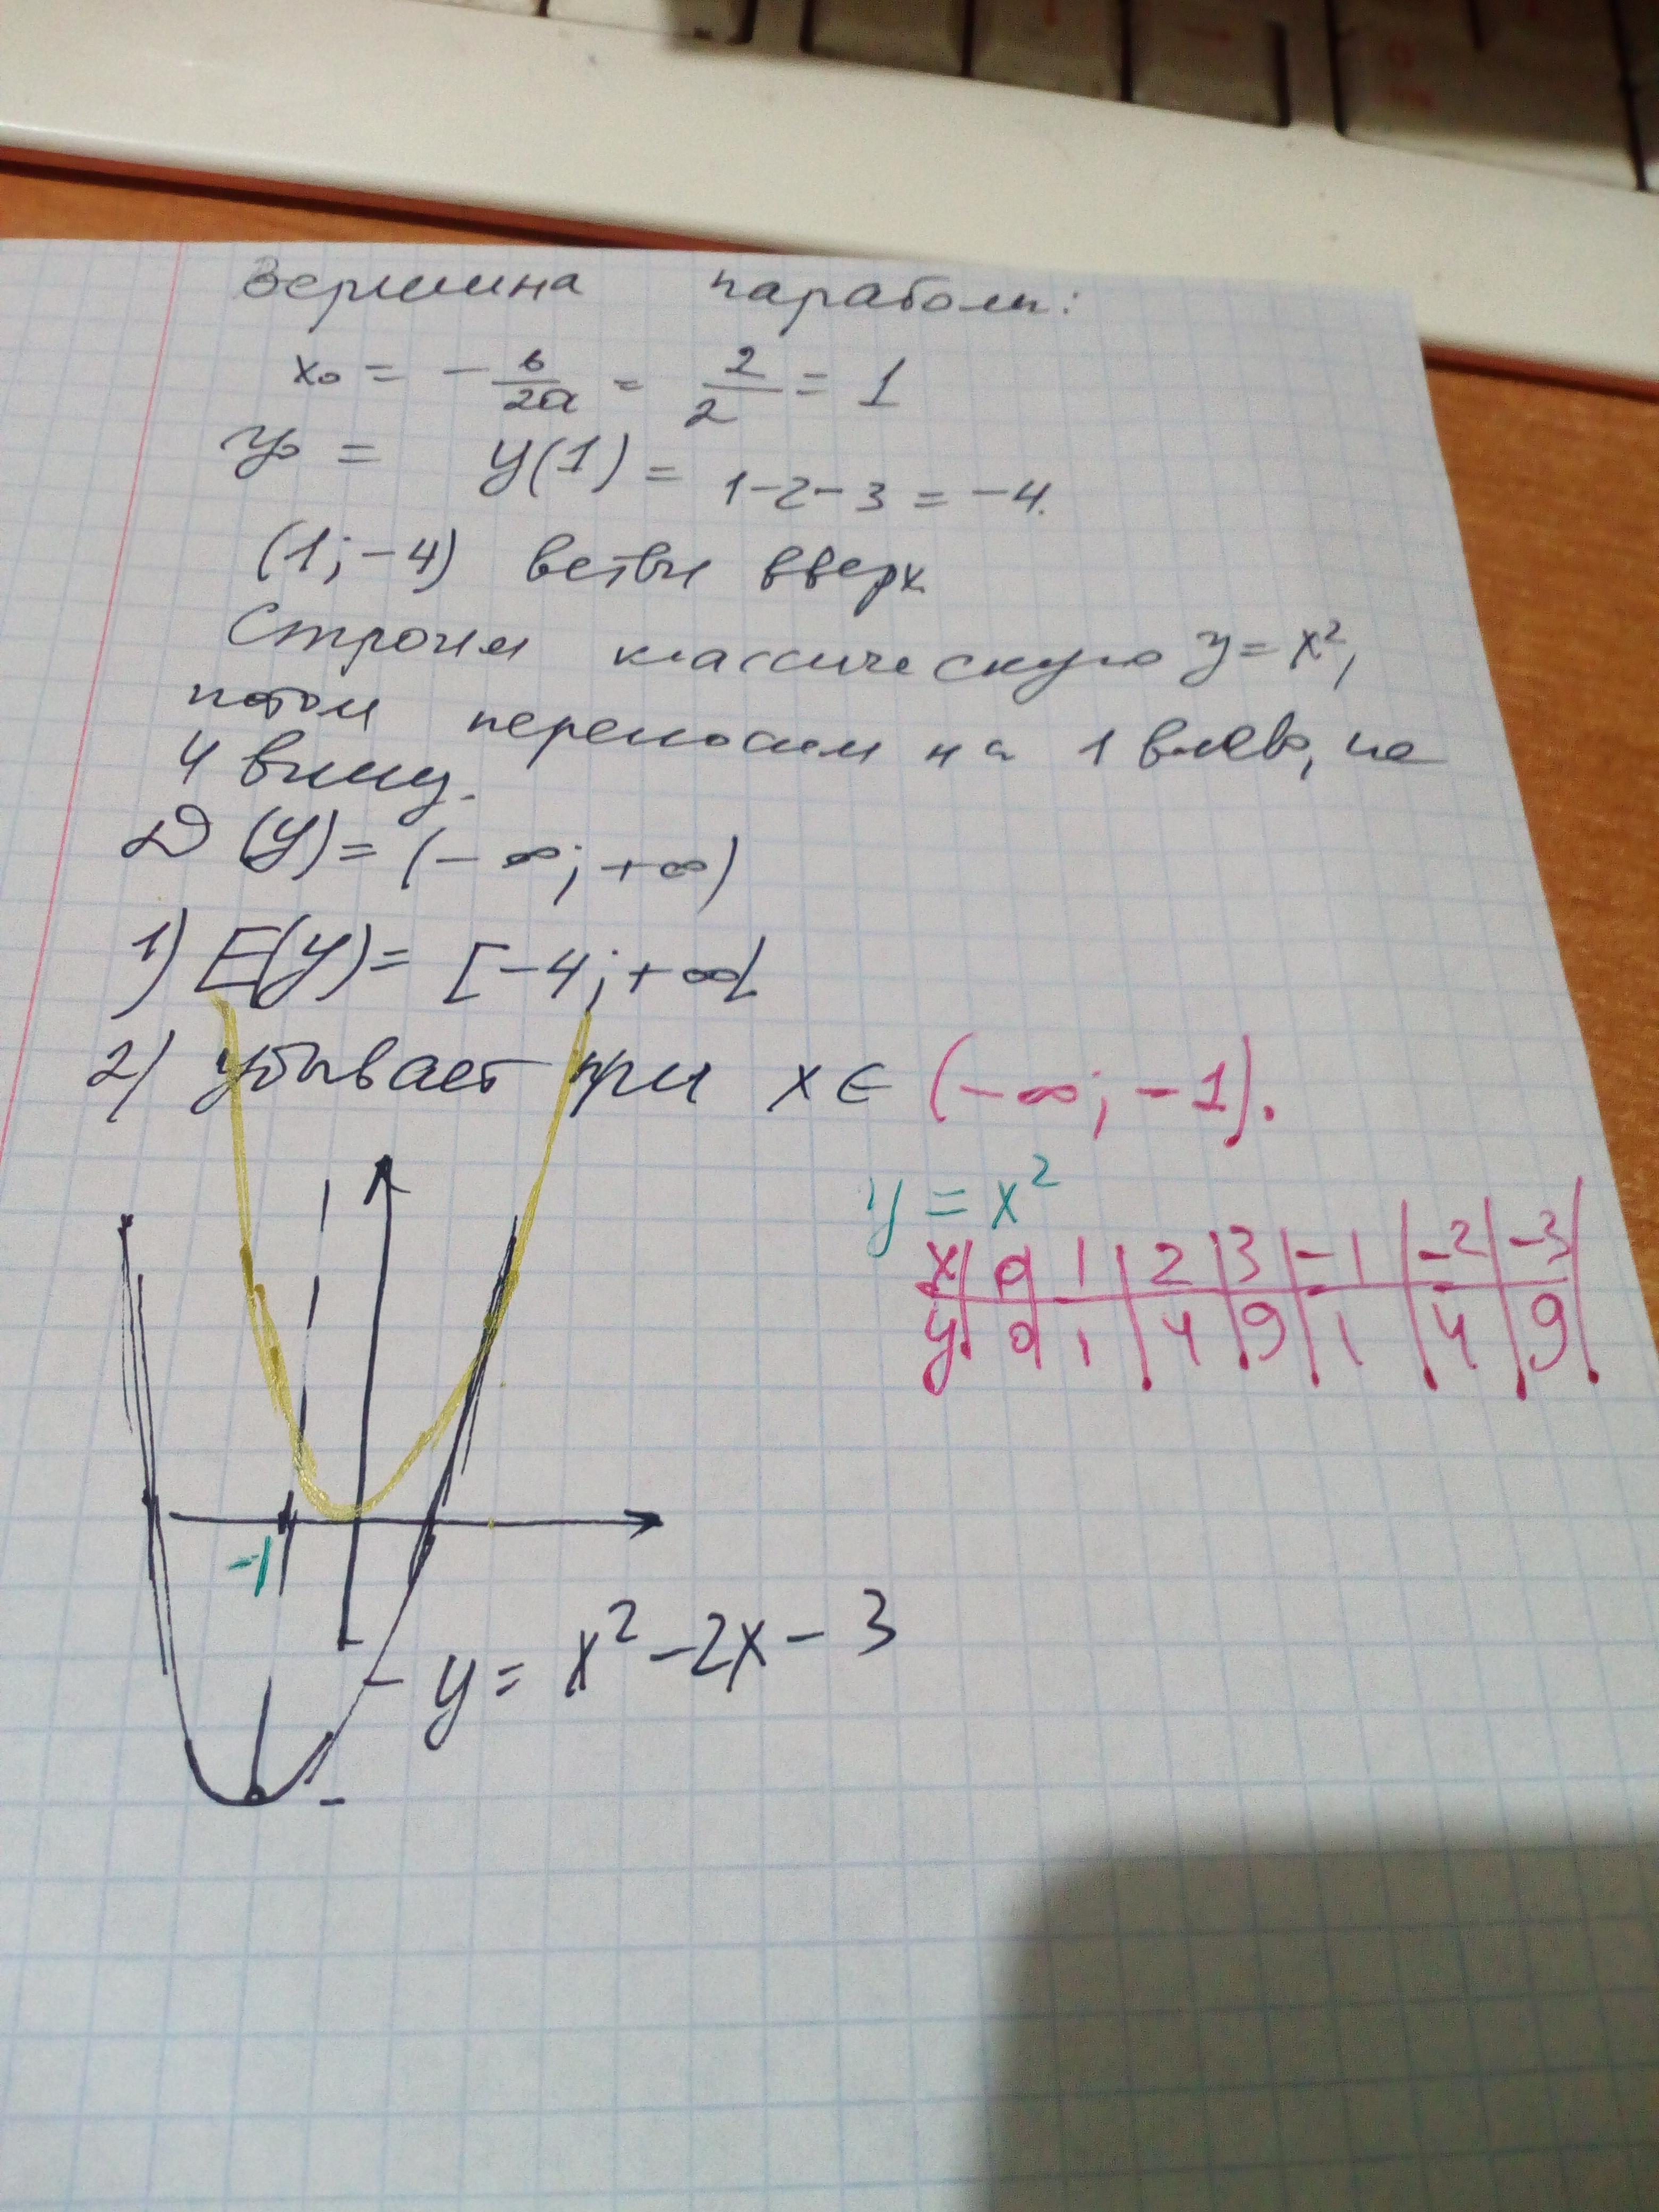 Вершина параболы:
x₀ = - b/2a = 2/2 = 1
y₀ = y(1) = 1-2-3 = -4.
(1;-4) ветви вверх
Строим классическую y = x²,
потом переносим на 1 влево, на
4 вниз.
D(y) = (-∞; +∞)
1) E(y) = [-4; +∞[
2) убывает при x ∈ (-∞; -1).
y = x²
x | 0 | 1 | 2 | 3 | -1 | -2 | -3
y | 0 | 1 | 4 | 9 | 1 | 4 | 9
-1
y = x² - 2x - 3